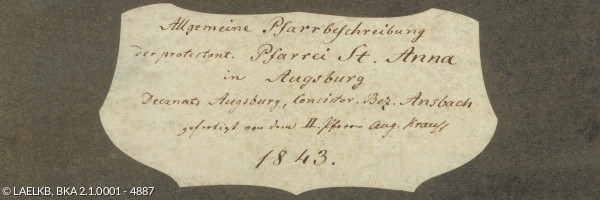 Allgemeine Pfarrbeschreibung
der protestant. Pfarrei St. Anna
in Augsburg
Decanats Augsburg, Consistor. Bez. Ansbach
gefertigt von dem II. Pfarrer Aug. Krauß
1843.
© LAELKB, BKA 2.1.0001 - 4887